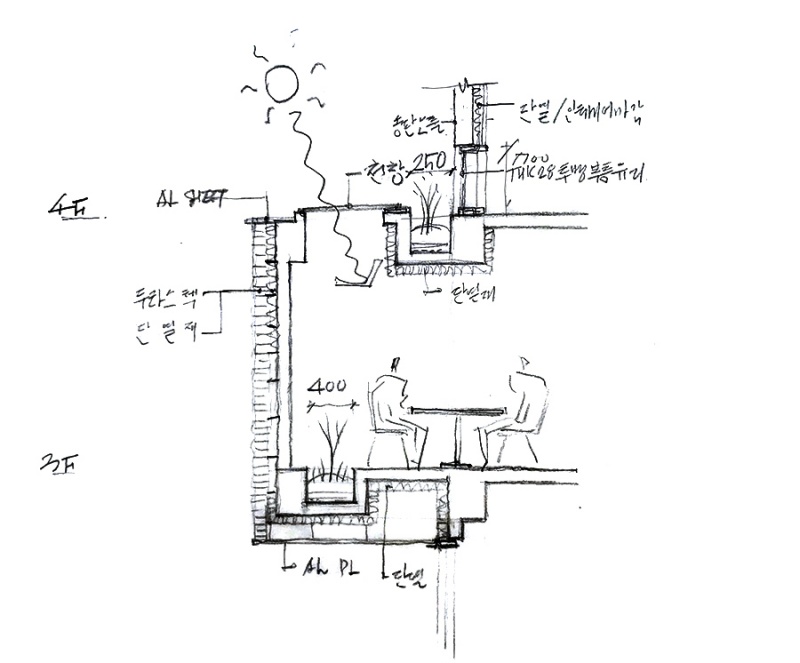 단열/인테리어마감
1700
천창
250
THK28투명복층유리
4F
AL SHEET
단열재
투라스텍
단열재
400
3F
AL PL
단열